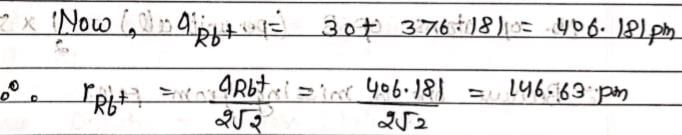 Now, aRb+ = 30+ 376.181 = 406.181 pm
∴ rRb+ = aRb+/2√2 = 406.181/2√2 = 146.63 pm